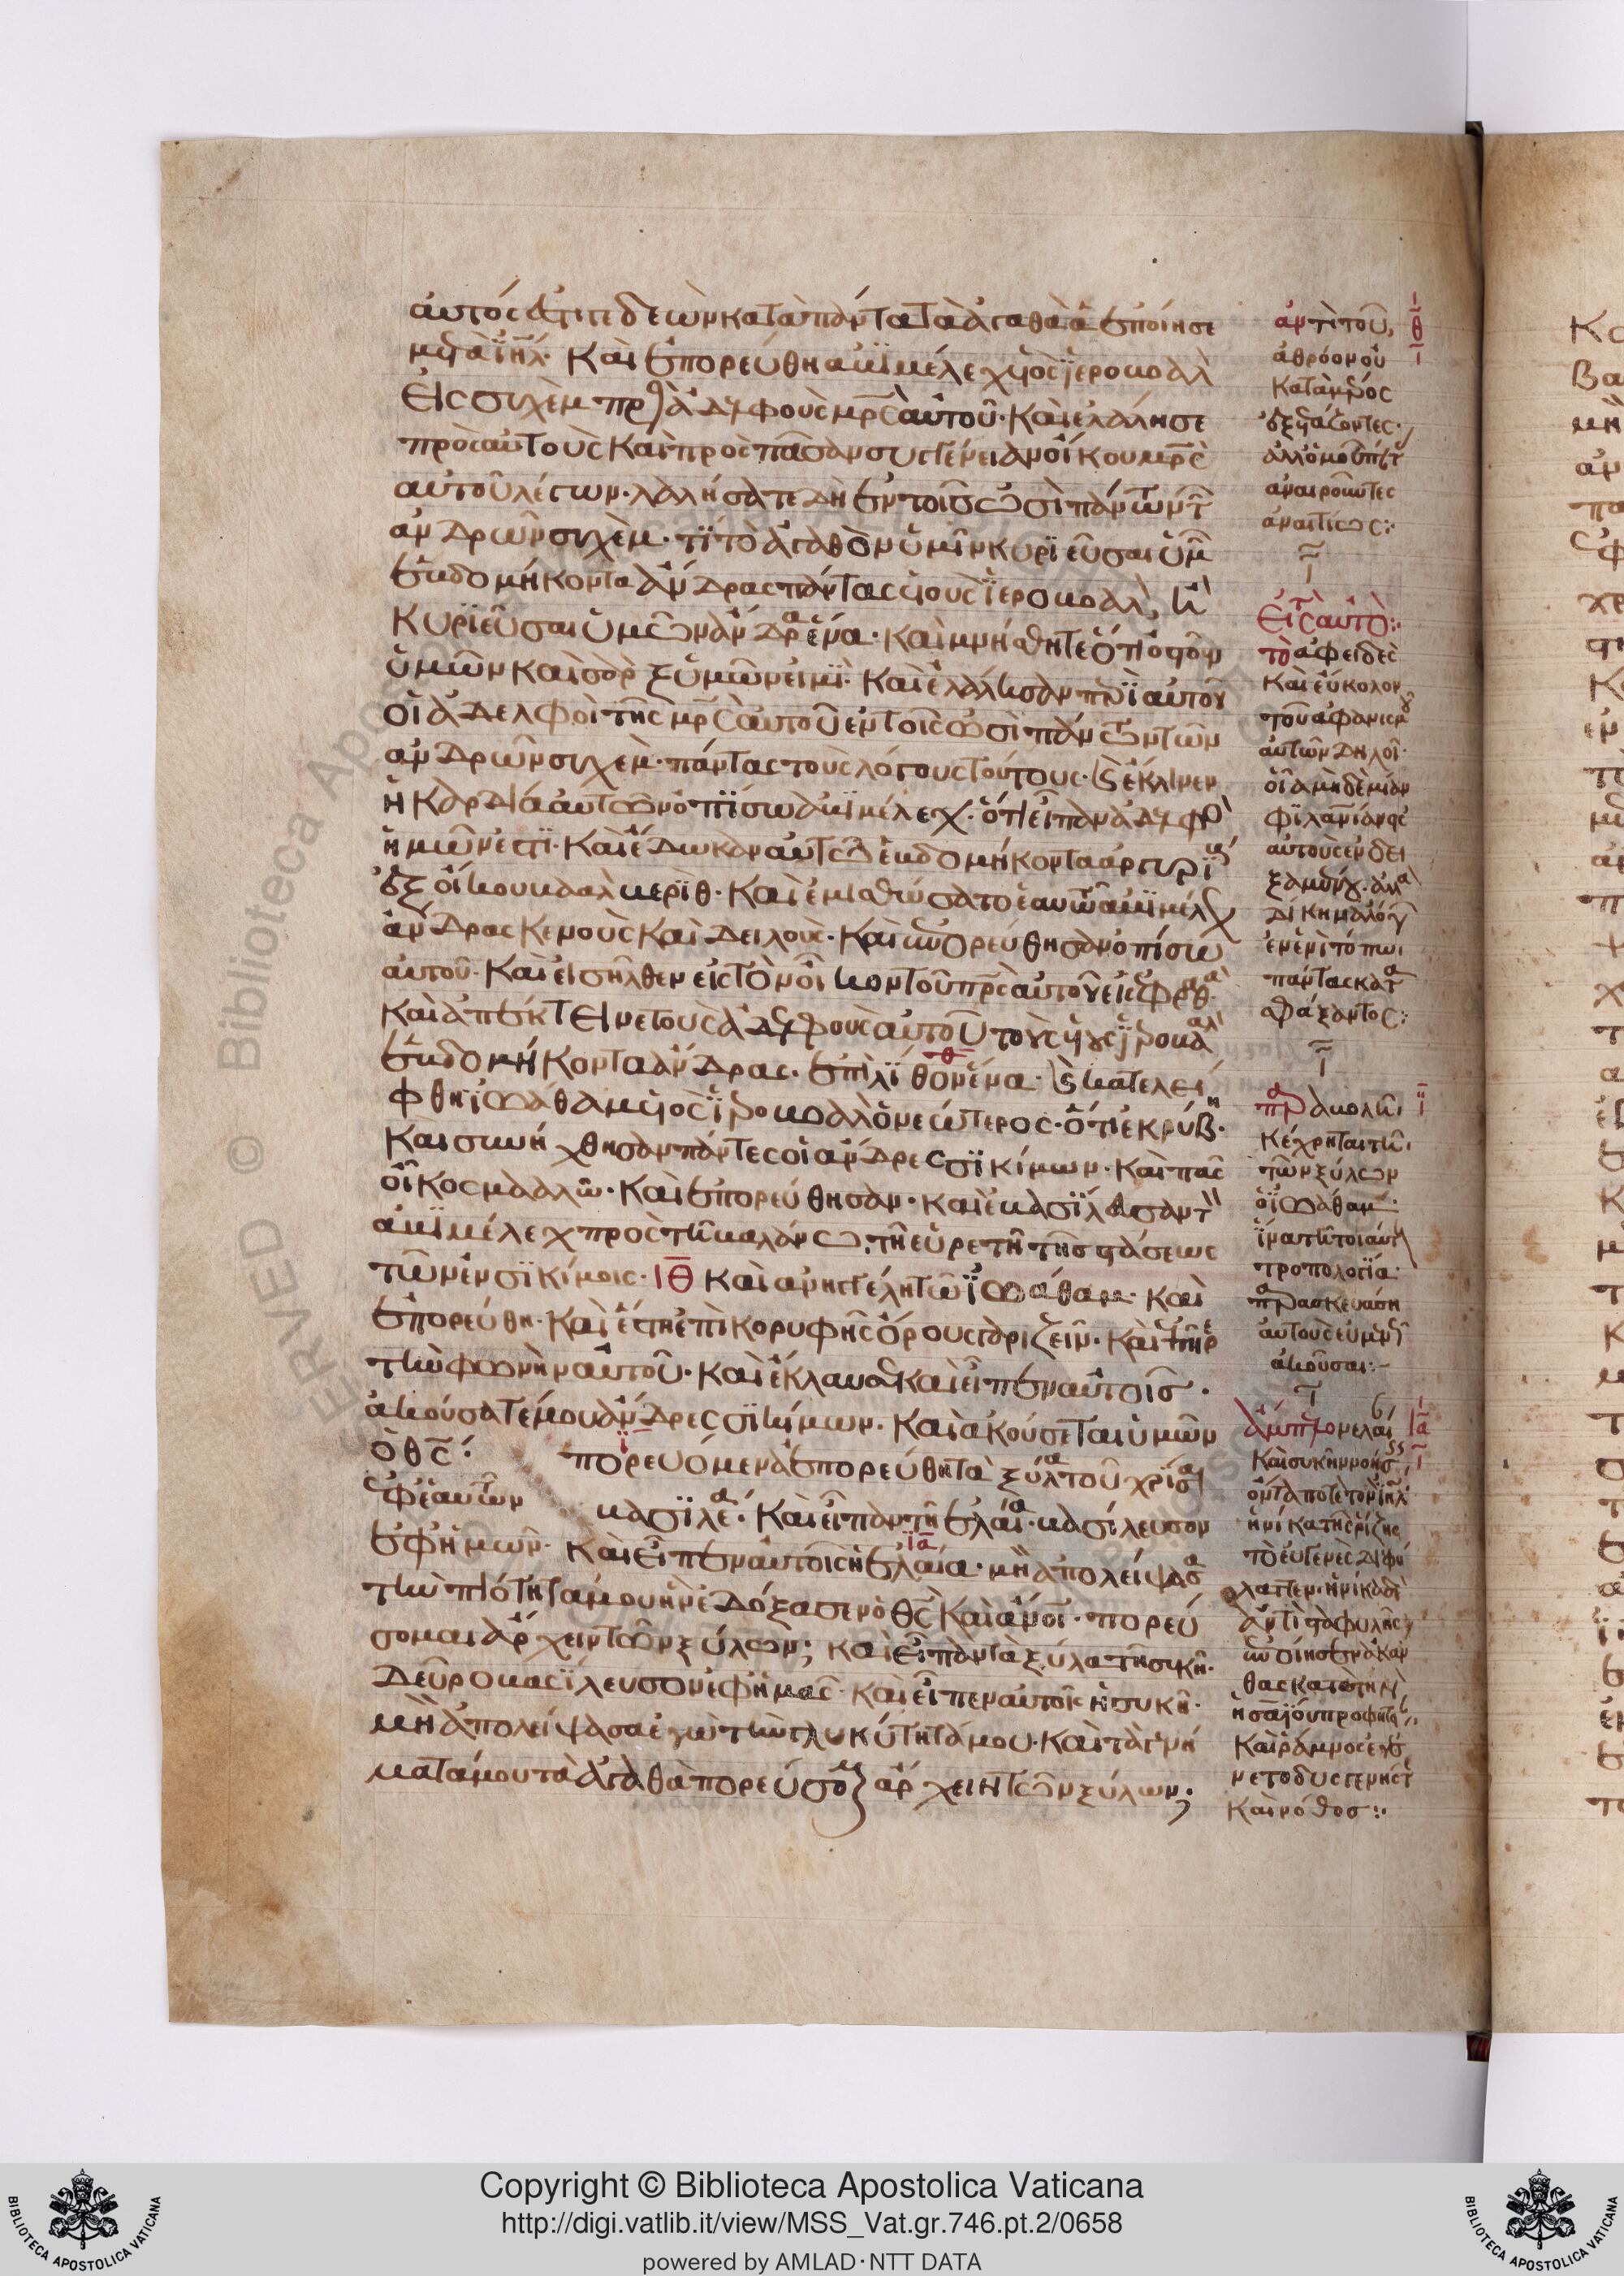 αὐτὸς ἐστι γεδεὼν κατὰ πάντα τὰ ἀγαθὰ ἃ ἐποίησε
μετὰ ἰηλ. Καὶ ἐπορεύθη ἀβιμέλεχ υἱὸς ἱεροβοὰλ
Εἰς συχὲμ πρ ἀδελφοὺς μρς αὐτοῦ. Καὶ ἐλάλησε
πρὸς αὐτοὺς καὶ πρὸς πᾶσαν συγγένειαν οἴκου μρς
αὐτοῦ λέγων. λαλήσατε δὴ ἐν τοῖς ὠσὶ πάντων τ
ἀνδρῶν συχὲμ. τί τὸ ἀγαθὸν ὑμῖν κυριεῦσαι ὑμ
ἑβδομήκοντα ἄνδρας πάντας υἱοὺς ἱεροβοὰλ, ἢ
Κυριεῦσαι ὑμῶν ἄνδρα ἕνα. καὶ μνήσθητε ὅτι ὀστοῦν
ὑμῶν καὶ σὰρξ ὑμῶν εἰμί. Καὶ ἐλάλησαν περὶ αὐτοῦ
οἱ ἀδελφοὶ τῆς μρς αὐτοῦ ἐν τοῖς ὠσὶ πάντων τῶν
ἀνδρῶν συχὲμ. πάντας τοὺς λόγους τούτους. καὶ ἔκλινεν
ἡ καρδία αὐτῶν ὀπίσω ἀβιμέλεχ. ὅτι εἶπαν ἀδελφὸ
ἡμῶν ἐστι. Καὶ ἔδωκαν αὐτῶ ἑβδομήκοντα ἀργυρί
ἐξ οἴκου βααλ βερὶθ. Καὶ ἐμισθώσατο ἑαυτῶ ἀβιμέλεχ
ἄνδρας κενοὺς καὶ δειλοὺς. Καὶ ἐπορεύθησαν ὀπίσω
αὐτοῦ. Καὶ εἰσῆλθεν εἰς τὸν οἶκον τοῦ πρς αὐτοῦ εἰς ἐφραθα
Καὶ ἀπέκτεινε τοὺς ἀδελφοὺς αὐτοῦ τοὺς υἱοὺς ἱεροβααλ
ἑβδομήκοντα ἄνδρας. ἐπὶ λίθον ἕνα. καὶ κατελεί
φθη ἰωάθαμ υἱὸς ἱεροβοαλ ὁ νεώτερος. ὅτι ἐκρύβη.
Καὶ συνήχθησαν πάντες οἱ ἄνδρες σικίμων. καὶ πᾶς
οἶκος μααλὼ. Καὶ ἐπορεύθησαν. καὶ ἐβασίλευσαν τ
ἀβιμέλεχ πρὸς τῆ βαλάνω τῆ εὑρετῆ τῆς στάσεως
τῶν ἐν σικίμοις. ΙΘ Καὶ ἀνηγγέλη τῶ ἰωάθαμ. καὶ
ἐπορεύθη. Καὶ ἔστη ἐπὶ κορυφῆς ὄρους γαριζείν. Καὶ ἐπῆρε
τὴν φωνὴν αὐτοῦ. Καὶ ἔκλαυσε καὶ εἶπεν αὐτοῖς.
ἀκούσατέ μου ἄνδρες σικίμων. Καὶ ἀκούσεται ὑμῶν
ὁ θς. πορευόμενα ἐπορεύθη τὰ ξύλα τοῦ χρίσαι
ἐφ ἑαυτῶν βασιλέα. Καὶ εἶπαν τῆ ἐλαία. βασίλευσον
ἐφ ἡμῶν. Καὶ εἶπεν αὐτοῖς ἡ ἐλαία. μὴ ἀπολείψασα
τὴν πιότητά μου ἣν ἐδόξασεν ὁ θς καὶ ἄνοι. πορεύ
σομαι ἄρχειν τῶν ξύλων; καὶ εἶπαν τὰ ξύλα τῆ συκῆ.
Δεῦρο βασίλευσον ἐφ ἡμᾶς. καὶ εἶπεν αὐτοῖς ἡ συκῆ.
μὴ ἀπολείψασα ἐγὼ τὴν γλυκύτητά μου. Καὶ τὰ γενή
ματά μου τὰ ἀγαθὰ πορεύσομαι ἄρχειν τῶν ξύλων;
ἀντὶ τοῦ,
θ
ἀθρόον οὐ
κατὰ μέρος
ἀλλ ὁμοῦ
ἀναιροῦντες
ἀναιτίως:
Εἰς τὸ αὐτὸ:
τὸ ἀφειδὲς
καὶ εὔκολον
τοῦ ἀφανισμοῦ
αὐτῶν δηλοῖ.
οἷα μηδεμίαν
αὐτοὺς ἐνδει
ἐν ἑνὶ τόπωι
πάντας κατα
σφάξαντος:
ι
κέχρηται τῆ
τῶν ξύλων
ὁ ἰωάθαμ.
ἵνα τῆ τοιαύτη
τροπολογία
παρασκευάση
αὐτοὺς
ἀκοῦσαι:
ια
ὄντα ποτὲ τὸν ἰηλ
ἡνίκα τῆς ῥίζης
τὸ εὐγενὲς διεφύ
λαττεν. ἡνίκα δὲ
ἀντὶ σταφυλῆς
ἐποίησεν ἀκάν
θας κατὰ τὴν
ἡσαΐου προφητεία,
καὶ ῥάμνος ἐγέ
νετο δυσγενὴς
καὶ νόθος:
RVED © Biblioteca Apostolica
Copyright © Biblioteca Apostolica Vaticana
http://digi.vatlib.it/view/MSS_Vat.gr.746.pt.2/0658
powered by AMLAD·NTT DATA
BIBLIOTECA APOSTOLICA VATICANA
BIBLIOTECA APOSTOLICA VATICANA